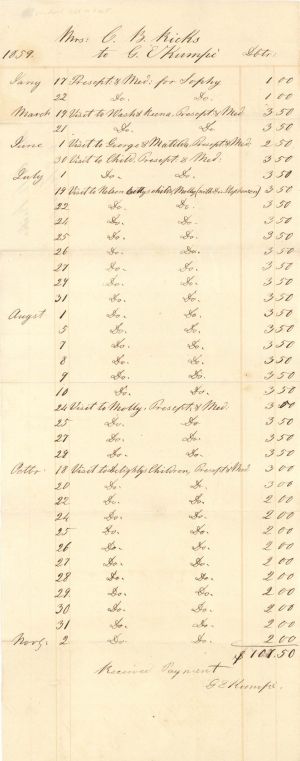 Mrs: C. B. Ricks
1859. to G. E Kumpé Dbtr:
Jany 17 Presept & Med: for Sophy 1 00
22 Do. Do. 1 00
March 19 Visit to Wash & Keene, Presept & Med 3 50
21 Do. Do 3 50
June 1 Visit to George & Matilda, Presept & Med. 2 50
30 Visit to Child, Presept & Med: 3 50
July 1 Do. Do. 3 50
19 Visit to Nelson child Molly (with Dr Stephenson) 3 50
22 Do. Do. 3 50
24 Do. Do. 3 50
25 Do. Do. 3 50
26 Do. Do. 3 50
27 Do. Do. 3 50
29 Do. Do. 3 50
31 Do. Do. 3 50
Augst 1 Do. Do. 3 50
5 Do. Do. 3 50
7 Do. Do. 3 50
8 Do. Do. 3 50
9 Do. Do. 3 50
10 Do. Do. 3 50
24 Visit to Molly, Presept & Med. 3 00
25 Do. Do. 3 50
27 Do. Do. 3 50
29 Do. Do. 3 50
Octbr 18 Visit to Children, Presept & Med 3 00
20 Do. Do. 3 00
22 Do. Do. 2 00
24 Do. Do. 2 00
25 Do. Do. 2 00
26 Do. Do. 2 00
27 Do. Do. 2 00
28 Do. Do. 2 00
29 Do. Do. 2 00
30 Do. Do. 2 00
31 Do. Do. 2 00
Novr. 2 Do. Do. 2 00
$ 107.50
Receivd Payment
G E Kumpé.